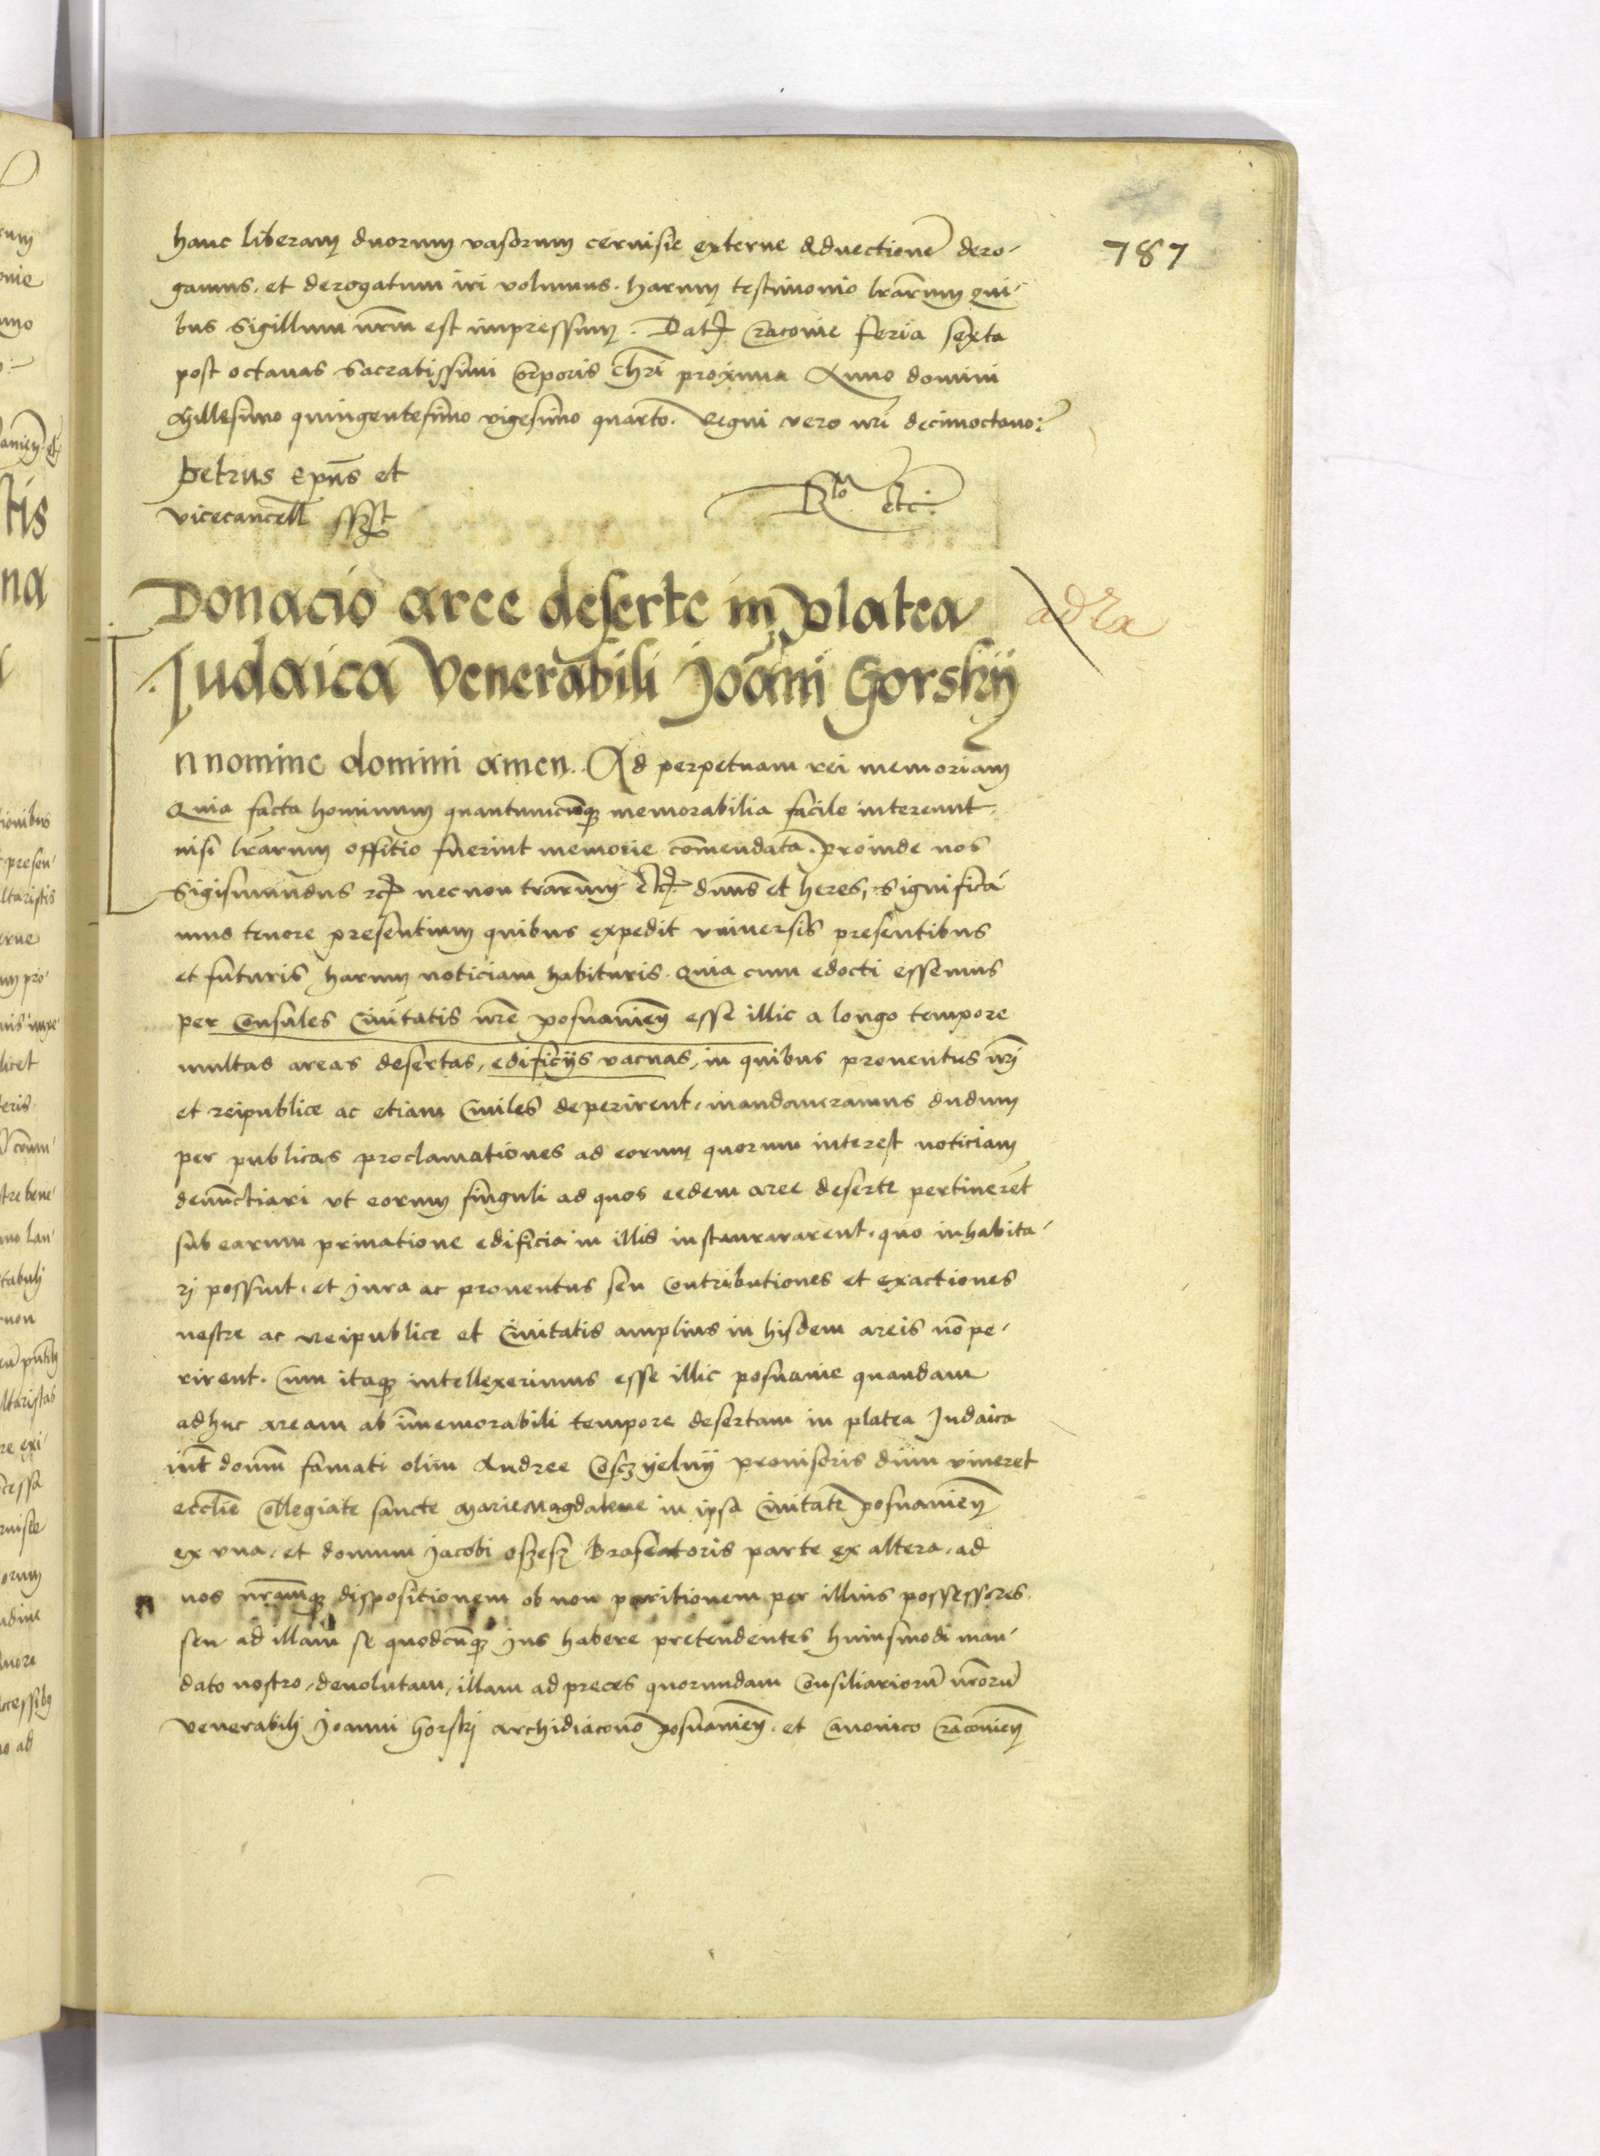 787
hanc liberam duorum vasorum cervisie externe advectionē dero-
gamus. et derogatum iri volumus. harum testimonio lrārum qui-
bus sigillum nrm̄ est impressum. Dat. Cracovie feria sexta
post octavas sacratissimi Corporis chrī proxima Anno domini
Millesimo quingentesimo vigesimo quarto. Regni vero nrī decimoctavo:
petrus Epūs et
vicecancell̄ sszt
Rlo etc.
Donacio aree deserte in platea
Judaica Venerabili Joāni Gorskij
ad Ra
n nomine domini amen. Ad perpetuam rei memoriam
Quia facta hominum quantumcūq memorabilia facile intereunt.
nisi lrārum offitio fuerint memorie cōmendata. proinde nos
Sigismundus rcȝ necnon trārum etcȝ dnūs et heres, Significa-
mus tenore presentium quibus expedit universis presentibus
et futuris harum noticiam habituris. Quia cum edocti essemus
per Consules Civitatis nrē posnanieñ esse illic a longo tempore
multas areas desertas, edificijs vacuas, in quibus proventus nrī
et reipublice ac etiam Civiles deperirent, mandaveramus dudum
per publicas proclamationes ad eorum quorum interest noticiam
denūctiari ut eorum singuli ad quos eedem aree deserte pertinerēt
sub earum privatione edificia in illis instaurararent. quo inhabita-
rj possint. et jura ac proventus seu Contributiones et exactiones
nostre ac reipublice et Civitatis amplius in hisdem areis nō pe-
rirent. Cum itaq intellexerimus esse illic posnanie quandam
adhuc aream ab īmemorabili tempore desertam in platea Judaica
int̄ domū famati olim Andree Cosczyelnij provisoris dum viveret
ecclīe Collegiate sancte Marie Magdalene in ipsa Civitate posnanieñ
ex una, et domum jacobi oszesz Braseatoris parte ex altera, ad
nos nrāmq dispositionem ob non paritionem per illius possessores.
seu ad illam se quodcūq jus habere pretendentes huiusmodi man-
dato nostro, devolutam, illam ad preces quorundam Consiliariorū nrōrū
venerabilj Joanni Gorskj archidiacono posnanieñ. et Canonico Cracovieñ